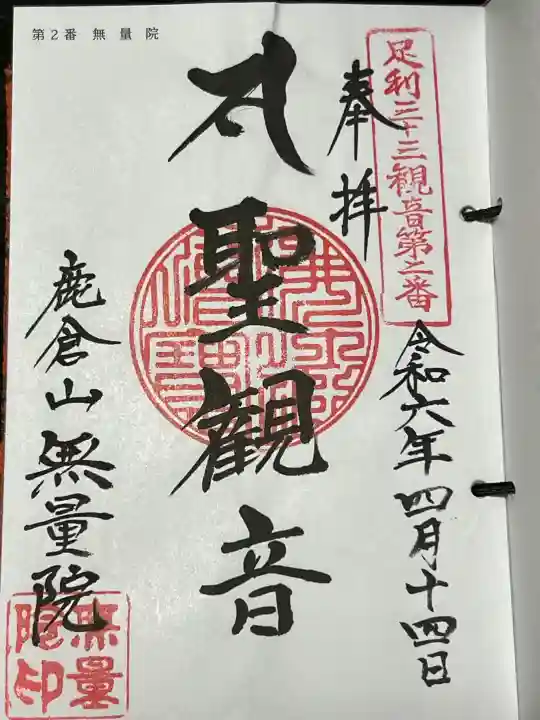 第2番 無量院
足利三十三観音第二番
奉拝
令和六年四月十四日
聖観音
鹿倉山無量院
無量
院印